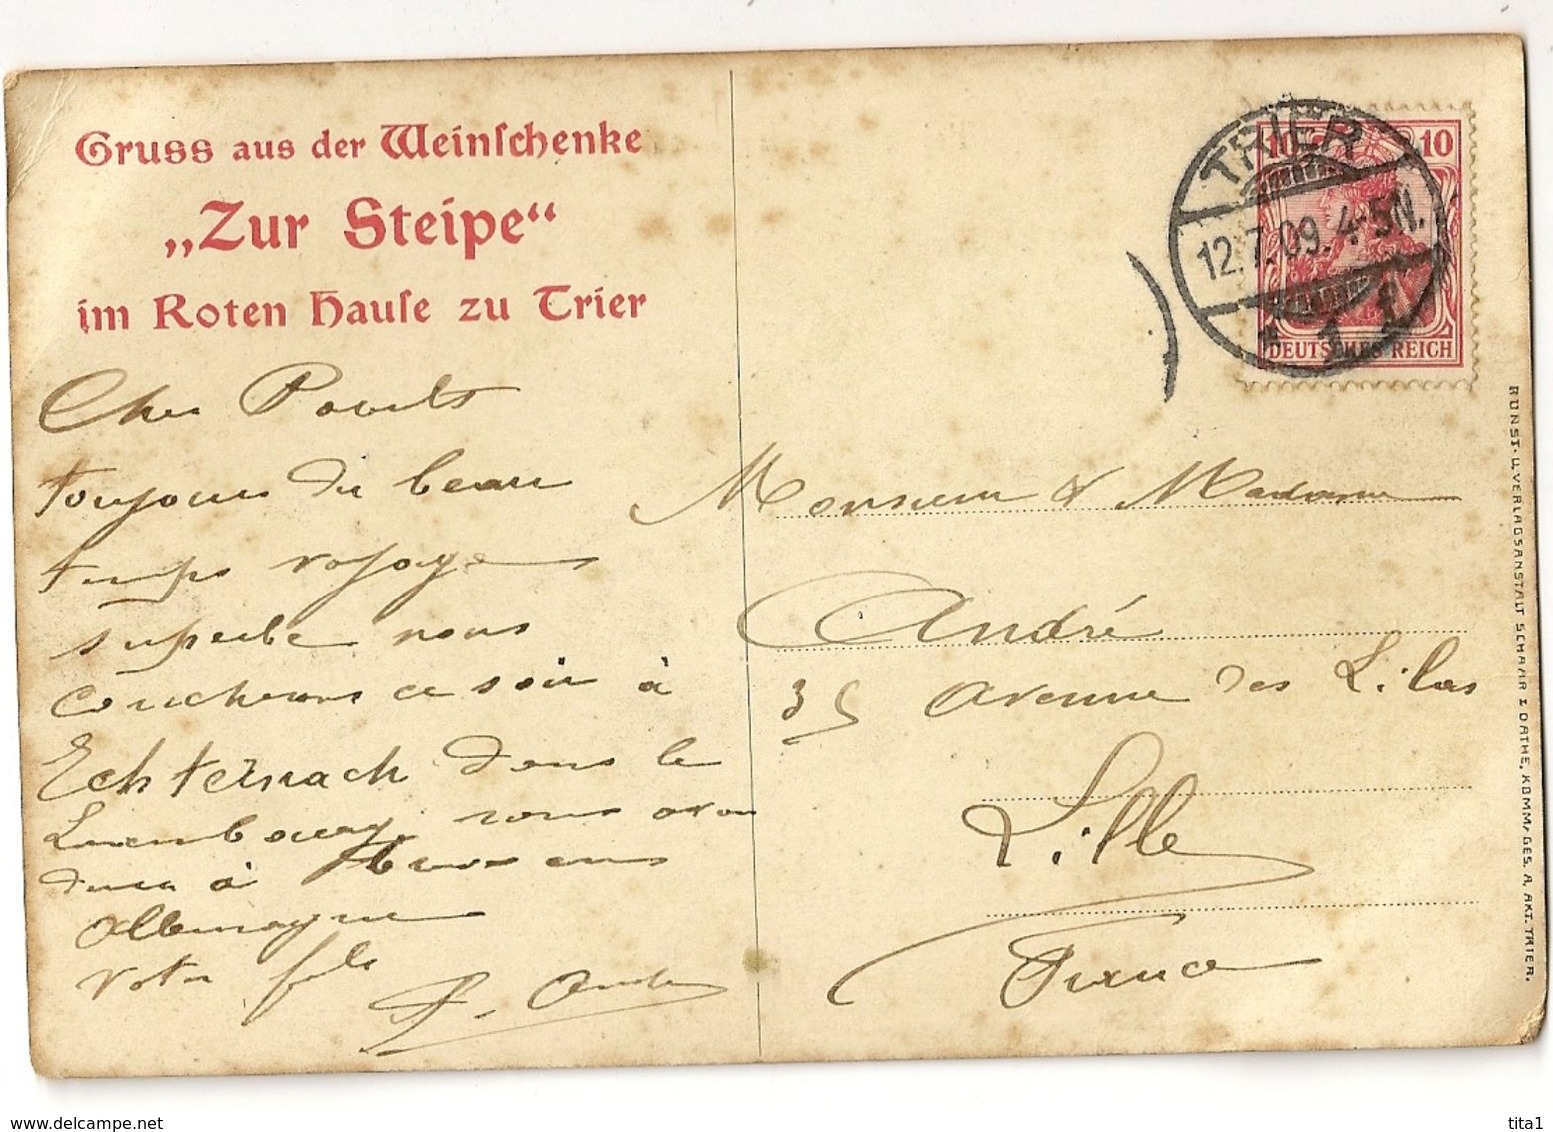 Gruss aus der Weinschenke
„Zur Steipe“
im Roten Hause zu Trier
Cher Parents
toujours du beau
temps voyage
superbe nous
coucherons ce soir à
Echternach dans le
Luxembourg, nous avons
à heures en
Allemagne
Votre fils
André
TRIER
12.7.09.4-5N.
* 1 f
10 10
DEUTSCHES REICH
Monsieur & Madame
André
35 avenue des Lilas
Lille
France
KUNST-U.VERLAGSANSTALT SCHAAR & DATHE, KOMM.GES. A. AKT. TRIER.
www.delcampe.net
tita1